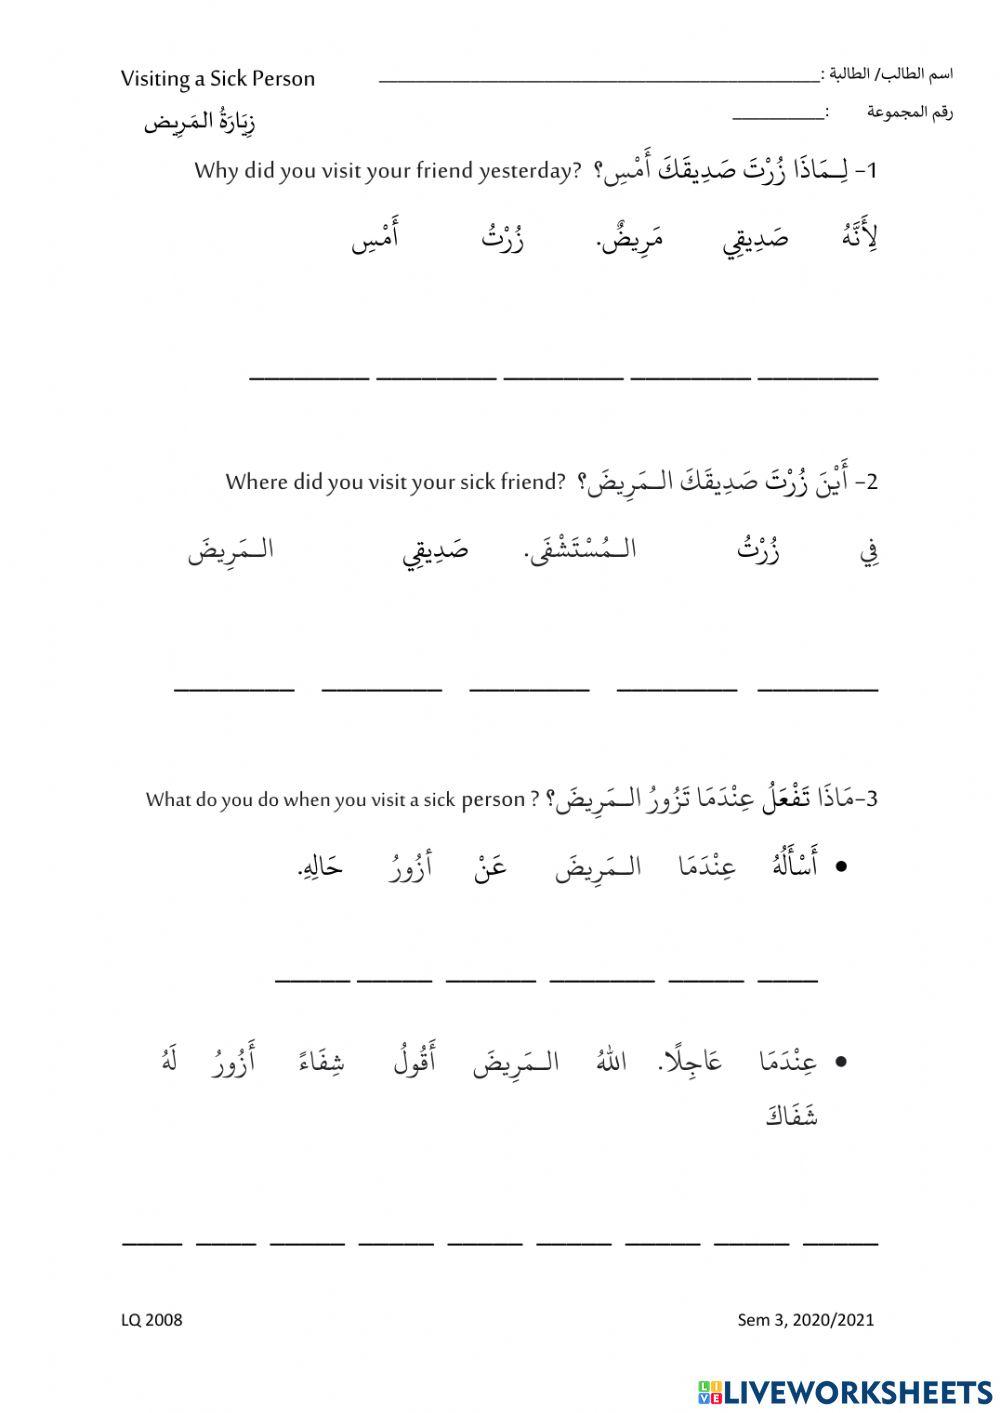 Visiting a Sick Person
اسم الطالب/ الطالبة :________________________________________
زِيَارَةُ المَرِيض
رقم المجموعة : __________
1- لِـمَاذَا زُرْتَ صَدِيقَكَ أَمْسِ؟ Why did you visit your friend yesterday?
لِأَنَّهُ صَدِيقِي مَرِيضٌ. زُرْتُ أَمْسِ
________ ________ ________ ________ ________
2- أَيْنَ زُرْتَ صَدِيقَكَ الـمَرِيضَ؟ Where did you visit your sick friend?
فِي زُرْتُ الـمُسْتَشْفَى. صَدِيقِي الـمَرِيضَ
________ ________ ________ ________ ________
3-مَاذَا تَفْعَلُ عِنْدَمَا تَزُورُ الـمَرِيضَ؟ What do you do when you visit a sick person ?
• أَسْأَلُهُ عِنْدَمَا الـمَرِيضَ عَنْ أزُورُ حَالِهِ.
____ _____ _______ ______ _____ _____
• عِنْدَمَا عَاجِلًا. اللهُ الـمَرِيضَ أَقُولُ شِفَاءً أَزُورُ لَهُ
شَفَاكَ
_____ _____ _____ _____ _____ _____ _____ ____ ____
LQ 2008 Sem 3, 2020/2021
LIVE LIVEWORKSHEETS